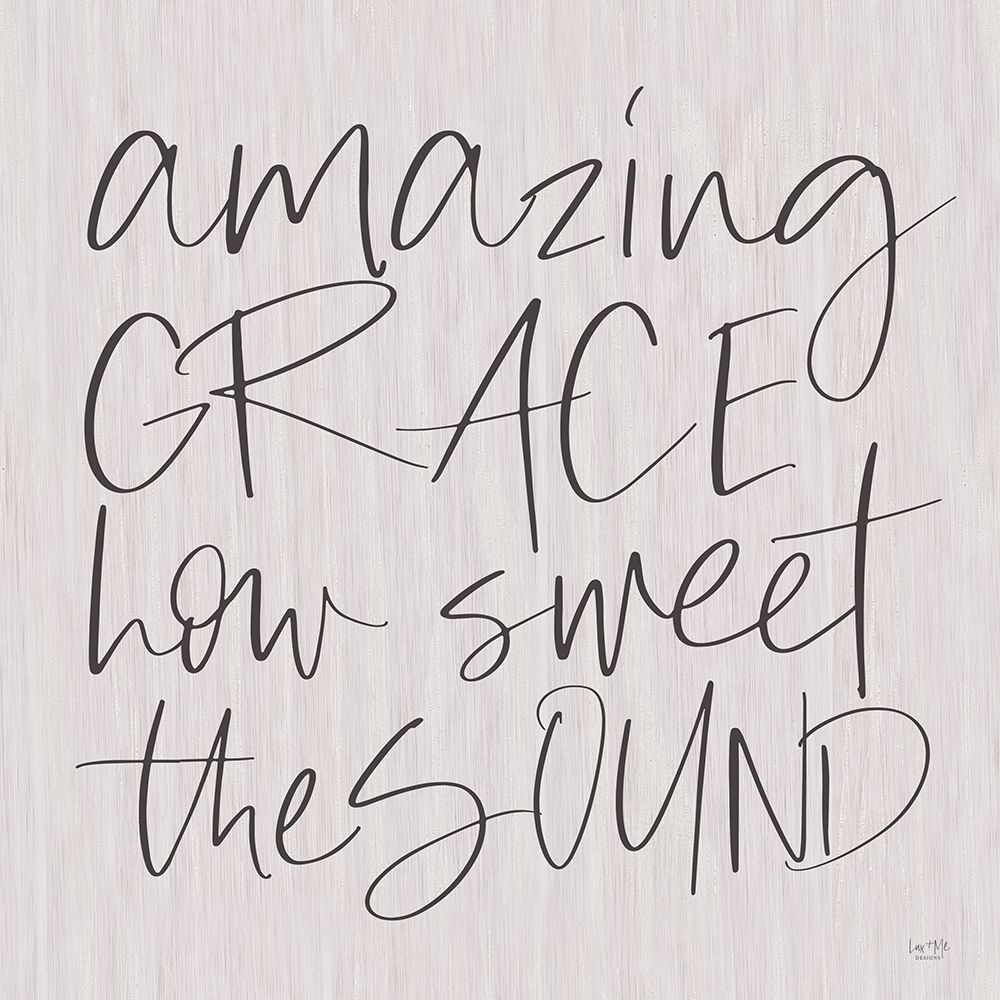 amazing
GRACE
how sweet
the SOUND
Lux + Me
DESIGNS